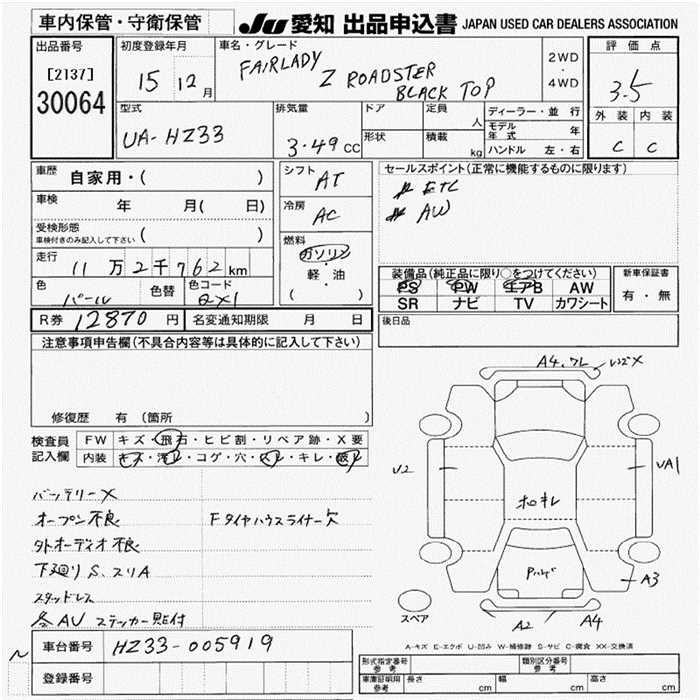 車内保管・守衛保管
JU 愛知 出品申込書 JAPAN USED CAR DEALERS ASSOCIATION
出品番号
[2137]
30064
初度登録年月
15 12月
車名・グレード
FAIRLADY Z ROADSTER
BLACK TOP
2WD
・
4WD
評価点
3.5
外装 内装
C C
型式
UA-HZ33
排気量
3.49cc
ドア
形状
定員 人
積載 kg
ディーラー・並行
モデル年式 年
ハンドル 左・右
車歴
自家用・( )
車検
年 月( 日)
受検形態
車検付きのみ記入して下さい ( )
走行
11万2千762km
色
パール
色替
色コード
QX1
シフト
AT
冷房
AC
燃料
ガソリン
・
軽・油
( )
セールスポイント(正常に機能するものに限ります)
# ETC
# AW
装備品(純正品に限り○をつけてください)
PS PW エアB AW
SR ナビ TV カワシート
新車保証書
有・無
後日品
R券 12870 円
名変通知期限 月 日
注意事項申告欄(不具合内容等は具体的に記入して下さい)
修復歴 有(箇所 )
検査員
記入欄
FW キズ・飛石・ヒビ割・リペア跡・X要
内装 キズ・汚レ・コゲ・穴・スレ・キレ・破レ
バッテリーX
オープン不良
Fタイヤハウスライナー欠
外オーディオ不良
下廻りS、スリA
スタッドレス
各AU ステッカー貼付
A4,ワレ
レンズX
U2
UA1
ホロキレ
A3
A2
A4
スペア
A-キズ E-エクボ U-凹み W-補修跡 S-サビ C-腐食 XX-交換済
車台番号
HZ33-005919
登録番号
型式指定番号 参考
類別区分番号 参考
車庫証明用 参考
長さ cm
幅 cm
高さ cm